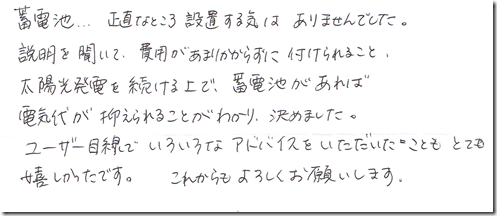 蓄電池… 正直なところ 設置する気は ありませんでした。
説明を聞いて、費用があまりかからずに 付けられること、
太陽光発電を続ける上で、蓄電池があれば
電気代が 抑えられることがわかり、決めました。
ユーザー目線で いろいろな アドバイスを いただいたことも とても
嬉しかったです。 これからも よろしくお願いします。